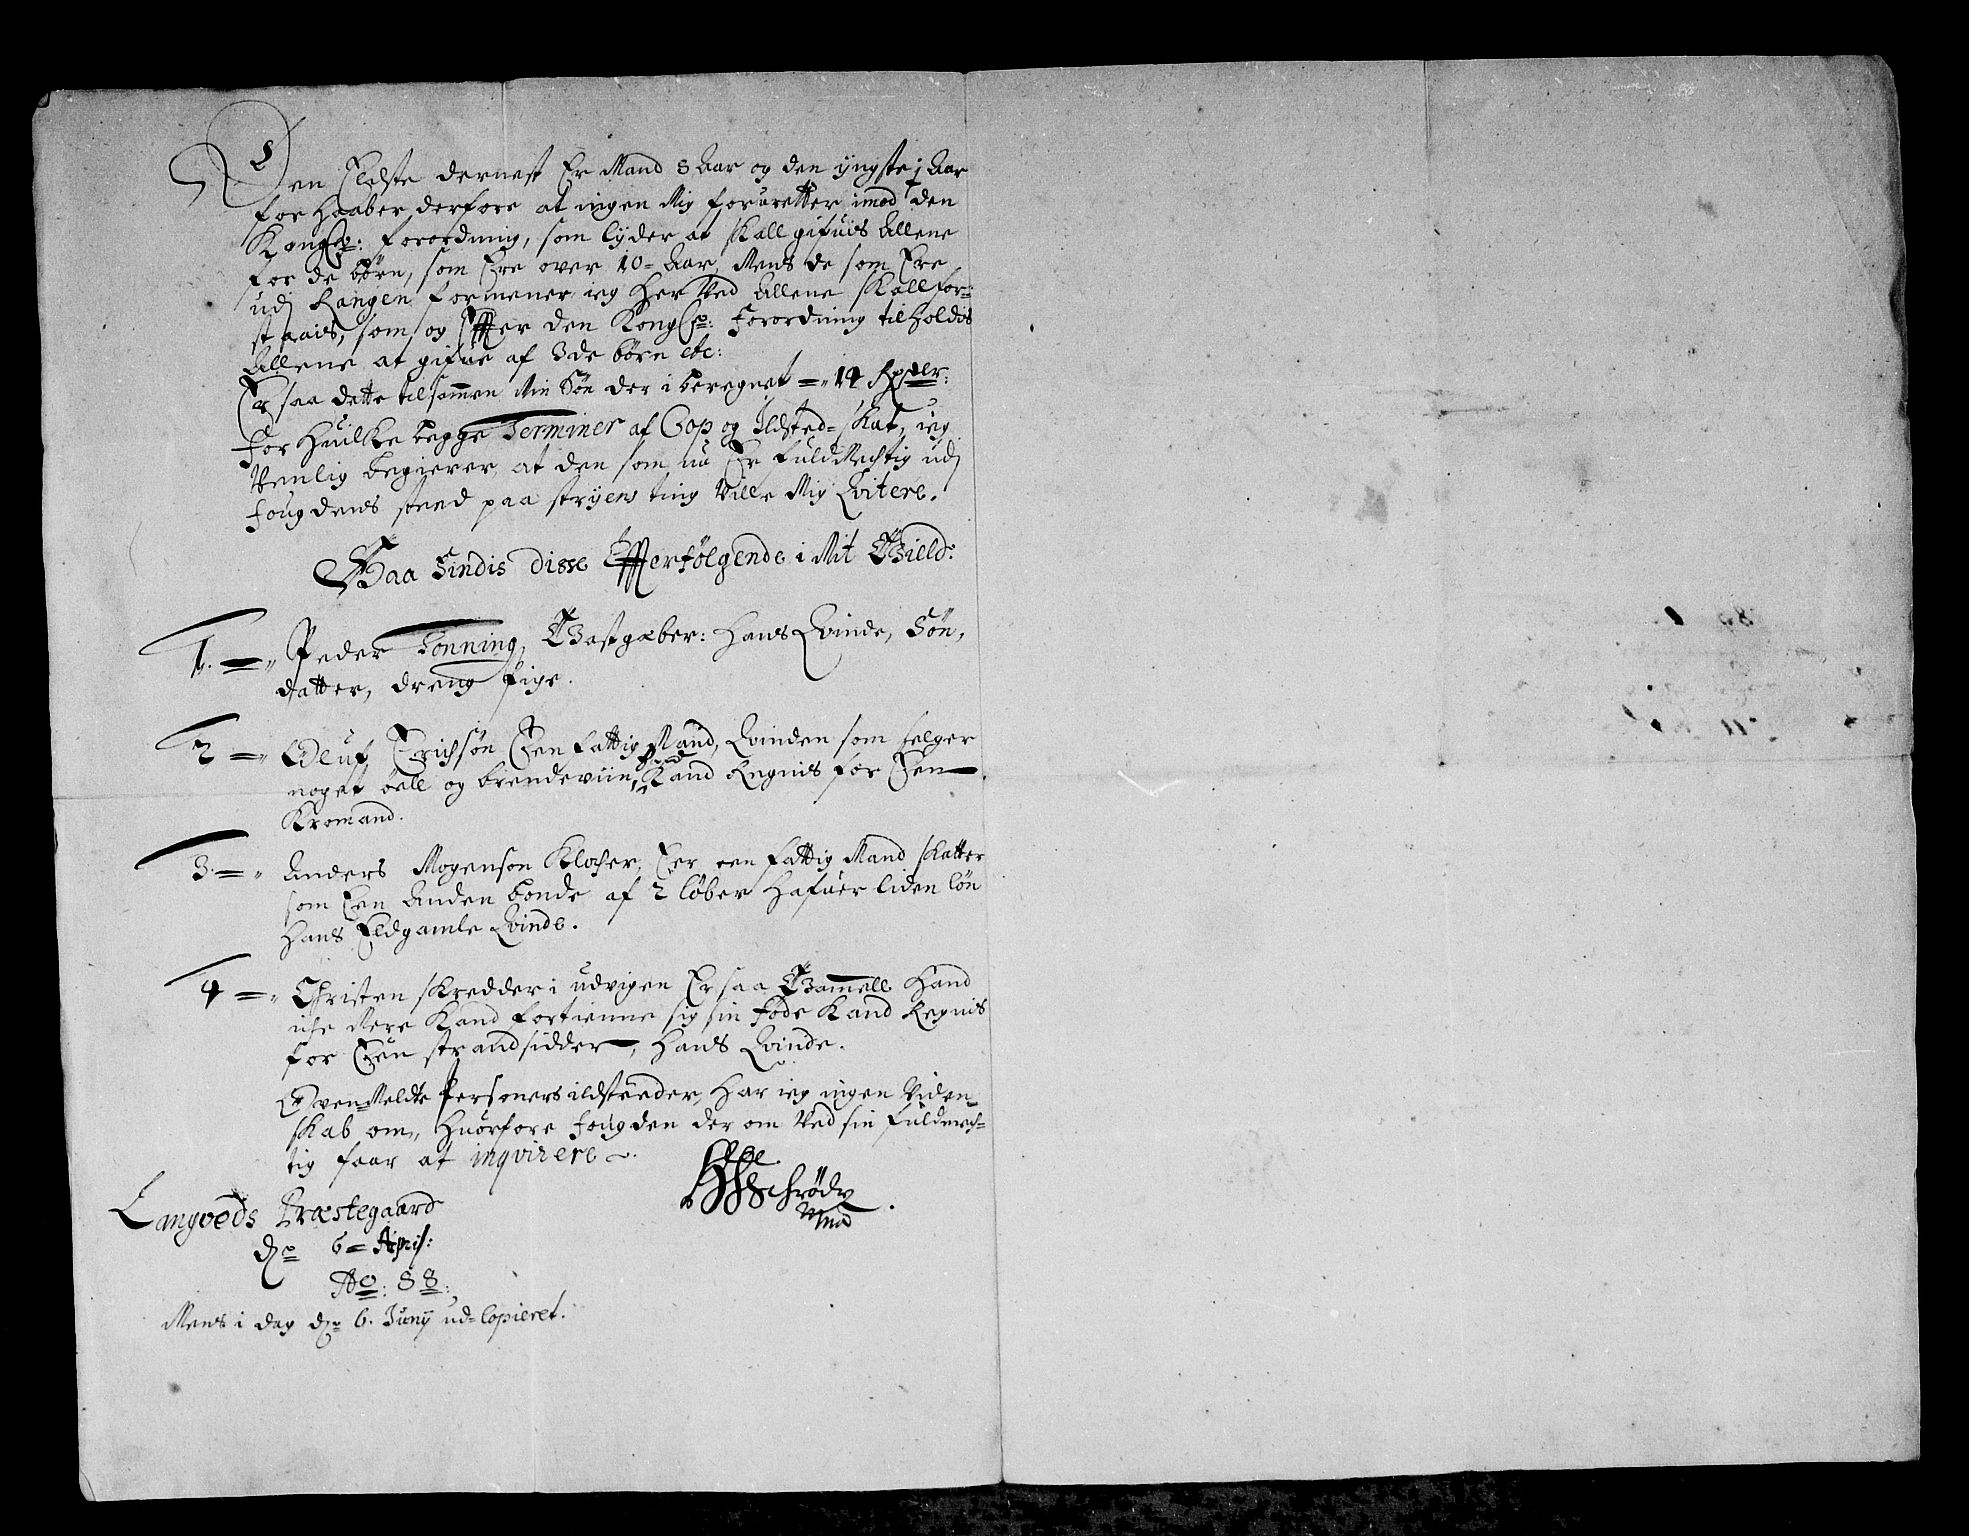 Den Eldste dernest Er Mand 8 Aar og den yngste 1 Aar
forhaaber derfore at ingen Mig foruretter imod den
Kongl: forordning, som lyder at skall gifuis Allene
for de børn, som Ere over 10 = Aar, Mens de som Ere
udj Rangen formener ieg her Ved Allene skall for-
staais, som og Effter den Kongl: forordning tilholdis
Allene at gifue af 3de børn etc:
Er saa dette tilsammen Min Søn der i beregnet =„ 14 Rixdlr:
For huilke begge Terminer af Cop og Ildsted = skat, ieg
Venlig begierer, at den som nu Er fuldMechtig udj
fougdens steed paa stryens ting Ville Mig Qvitere.
Saa Findis disse Effterfølgende i Mit Gield:
1. =„ Peder Tonning, Gastgæber: Hans Qvinde, Søn,
datter, dreng pige.
2 =„ Oluf Erichsøn Een fattig Mand, Qvinden som selger
noget øell og brendeviin, Kand Regnis for Een
Kromand.
3. =„ Anders Mogenson Klocher, Eer een fattig Mand skatter
som Een Anden bonde af 2 løber Hafuer liden løn
Hans Eldgamle Qvinde.
4 =„ Christen skredder i udvigen Er saa Gammell Hand
iche Mere Kand fortienne sig sin føde Kand Regnis
for Een strandsidder, Hans Qvinde.
OvenMeldte Personers ildsteeder, Har ieg ingen Viden-
skab om, Huorfore fougden der om Ved sin fuldmech-
tig faar at inqvirere.
Schrøder
Mpria
Langveds Præstegaard
dn 6 = April:
Ao: 88.
Mens i dag dn 6. Junij ud = Copieret.